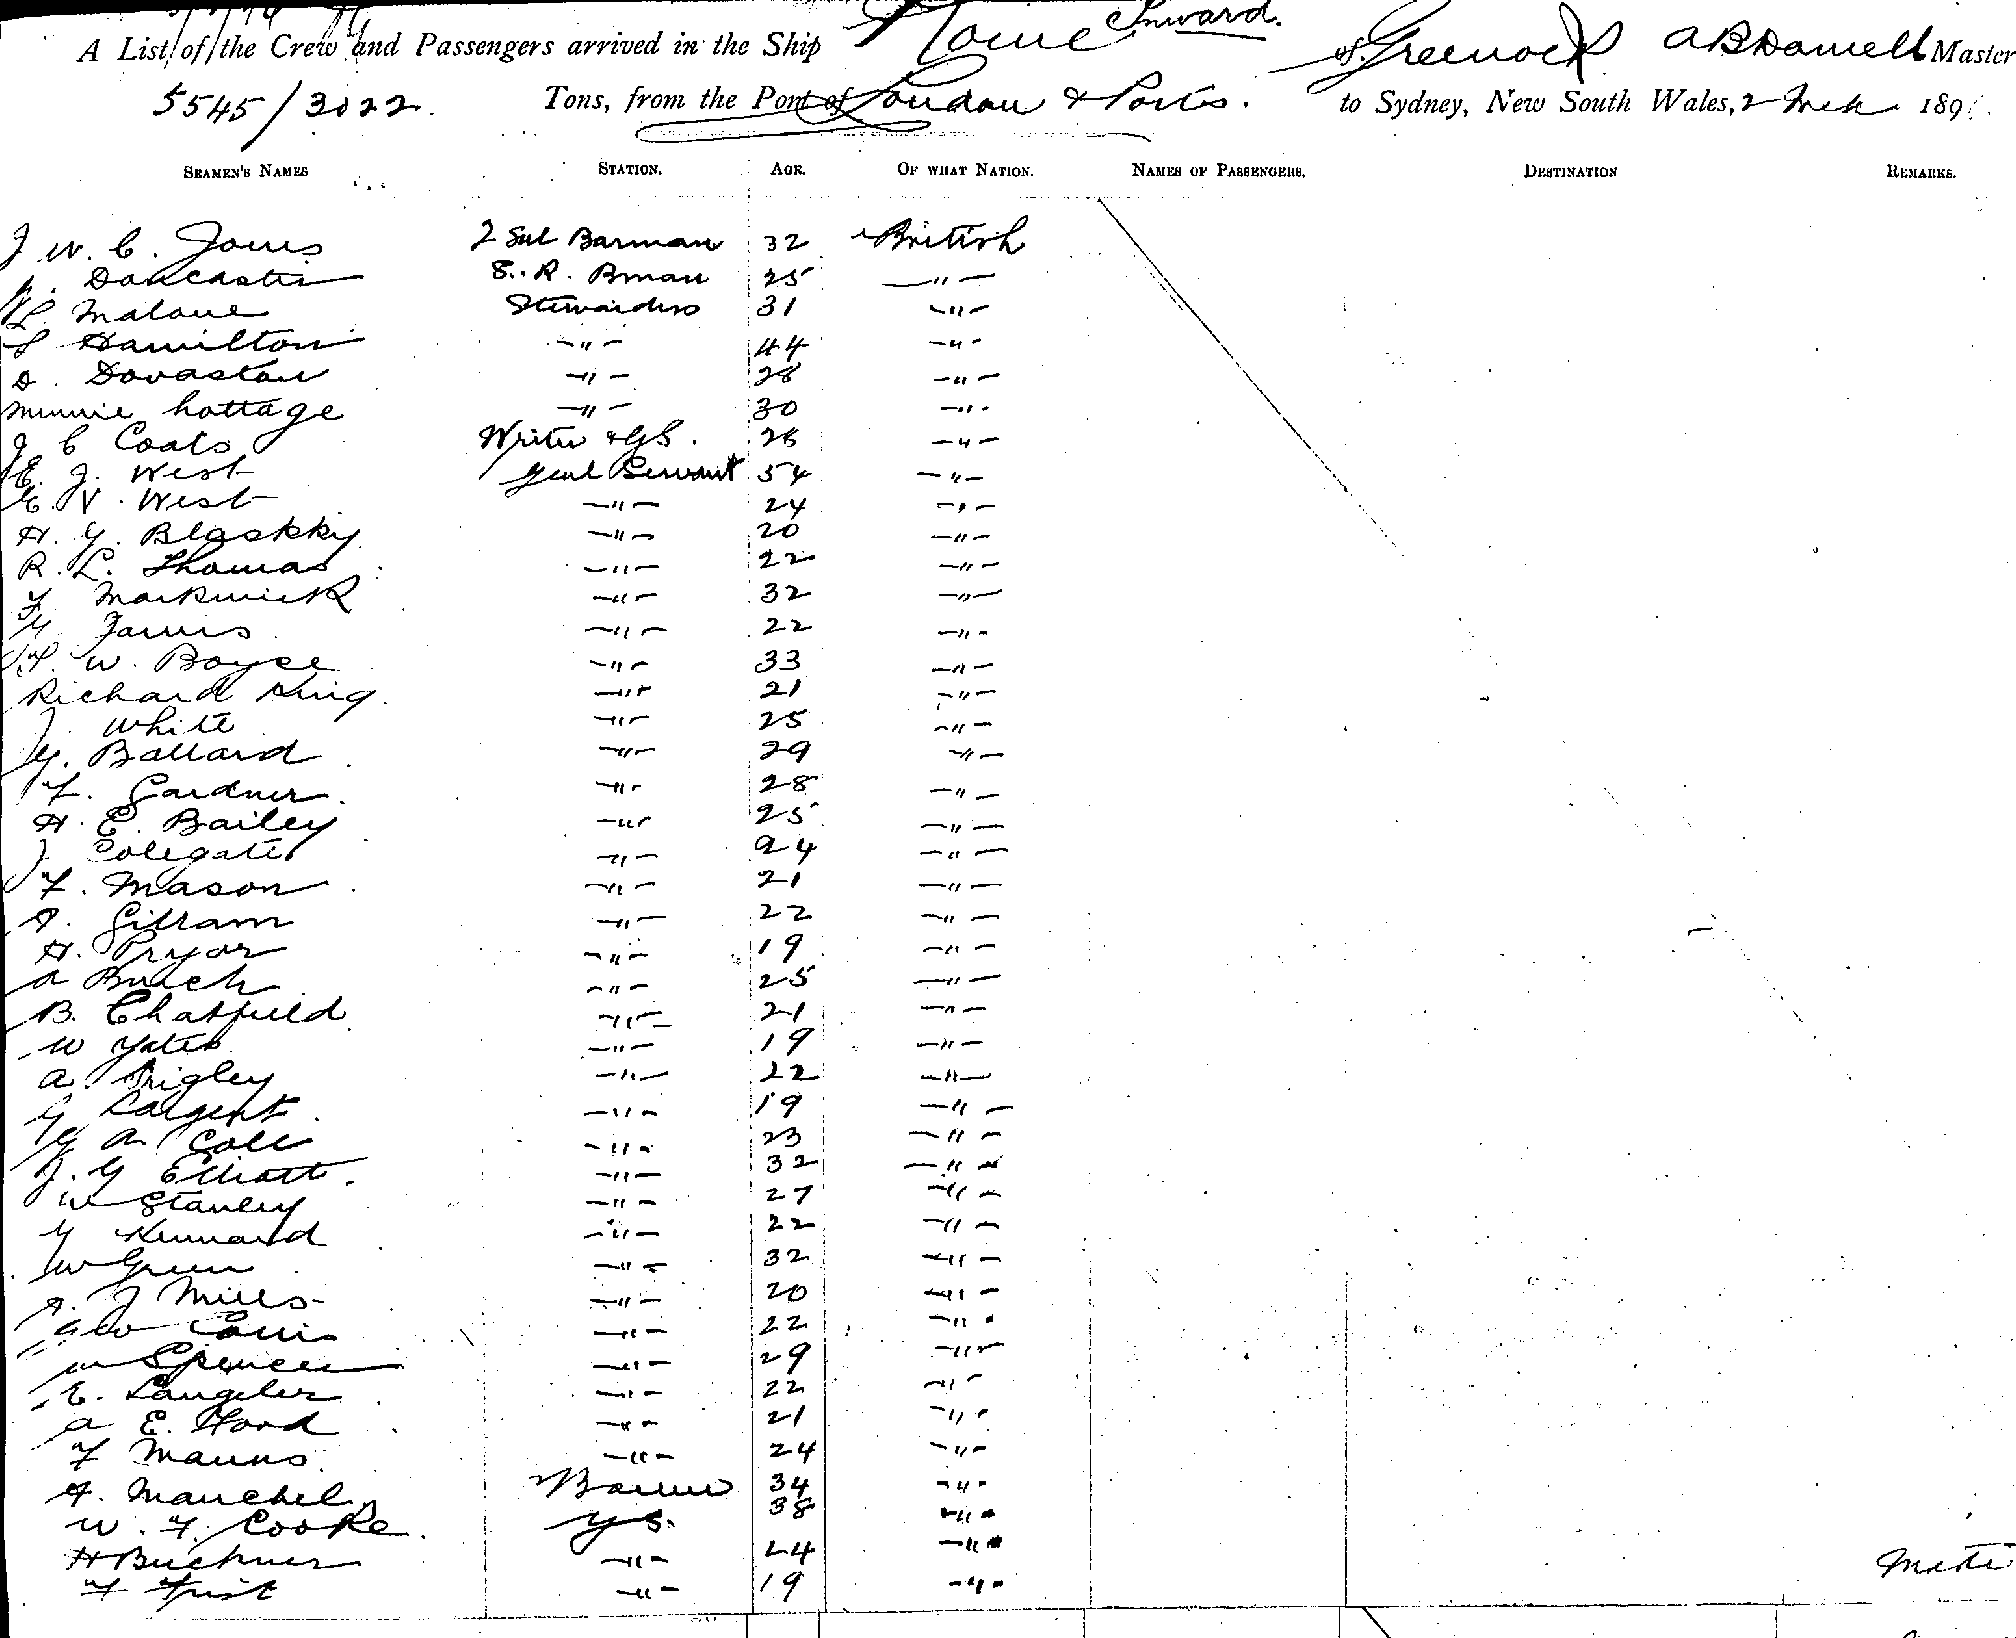 Inward.
A List of the Crew and Passengers arrived in the Ship Rome of Greenock A B Daniell Master
5545/3022. Tons, from the Port of London & Ports. to Sydney, New South Wales, 2 189
SEAMEN'S NAMES STATION. AGE. OF WHAT NATION. NAMES OF PASSENGERS. DESTINATION REMARKS.
J W. C. Jones 2 Sal Barman 32 British
Doncaster S. R. Bman 25 —"—
L. Malone Stewardess 31 —"—
S Hamilton —"— 44 —"—
D. Dovaston —"— 28 —"—
Minnie hottage —"— 30 —"—
J C Coats Writer & GS. 26 —"—
E. J. West Genl Servant 54 —"—
E. V. West —"— 24 —"—
H. G. Blaskky —"— 20 —"—
R. L. Thomas —"— 22 —"—
F Markwick —"— 32 —"—
G —"— 22 —"—
F. W. Boyce —"— 33 —"—
Richard King —"— 21 —"—
J. White —"— 25 —"—
G. Ballard —"— 29 —"—
F. Gardner. —"— 28 —"—
H. E. Bailey —"— 25 —"—
J. Colegate —"— 24 —"—
F. Mason —"— 21 —"—
A. Gilram —"— 22 —"—
H. Pryor —"— 19 —"—
A —"— 25 —"—
B. Chatfield —"— 21 —"—
W Yates —"— 19 —"—
A. —"— 22 —"—
G Sargent —"— 19 —"—
G A Cole —"— 23 —"—
J. G Elliott. —"— 32 —"—
W Stanley —"— 27 —"—
G Kennard —"— 22 —"—
W Green —"— 32 —"—
A. J Mills —"— 20 —"—
—"— 22 —"—
W Spencer —"— 29 —"—
E. Langeler —"— 22 —"—
A E. Hood —"— 21 —"—
F Manns —"— 24 —"—
A. Manchel 34 —"—
W. F. Cooke. G S. 38 —"—
H Buckner —"— 24 —"—
F Frist —"— 19 —"—